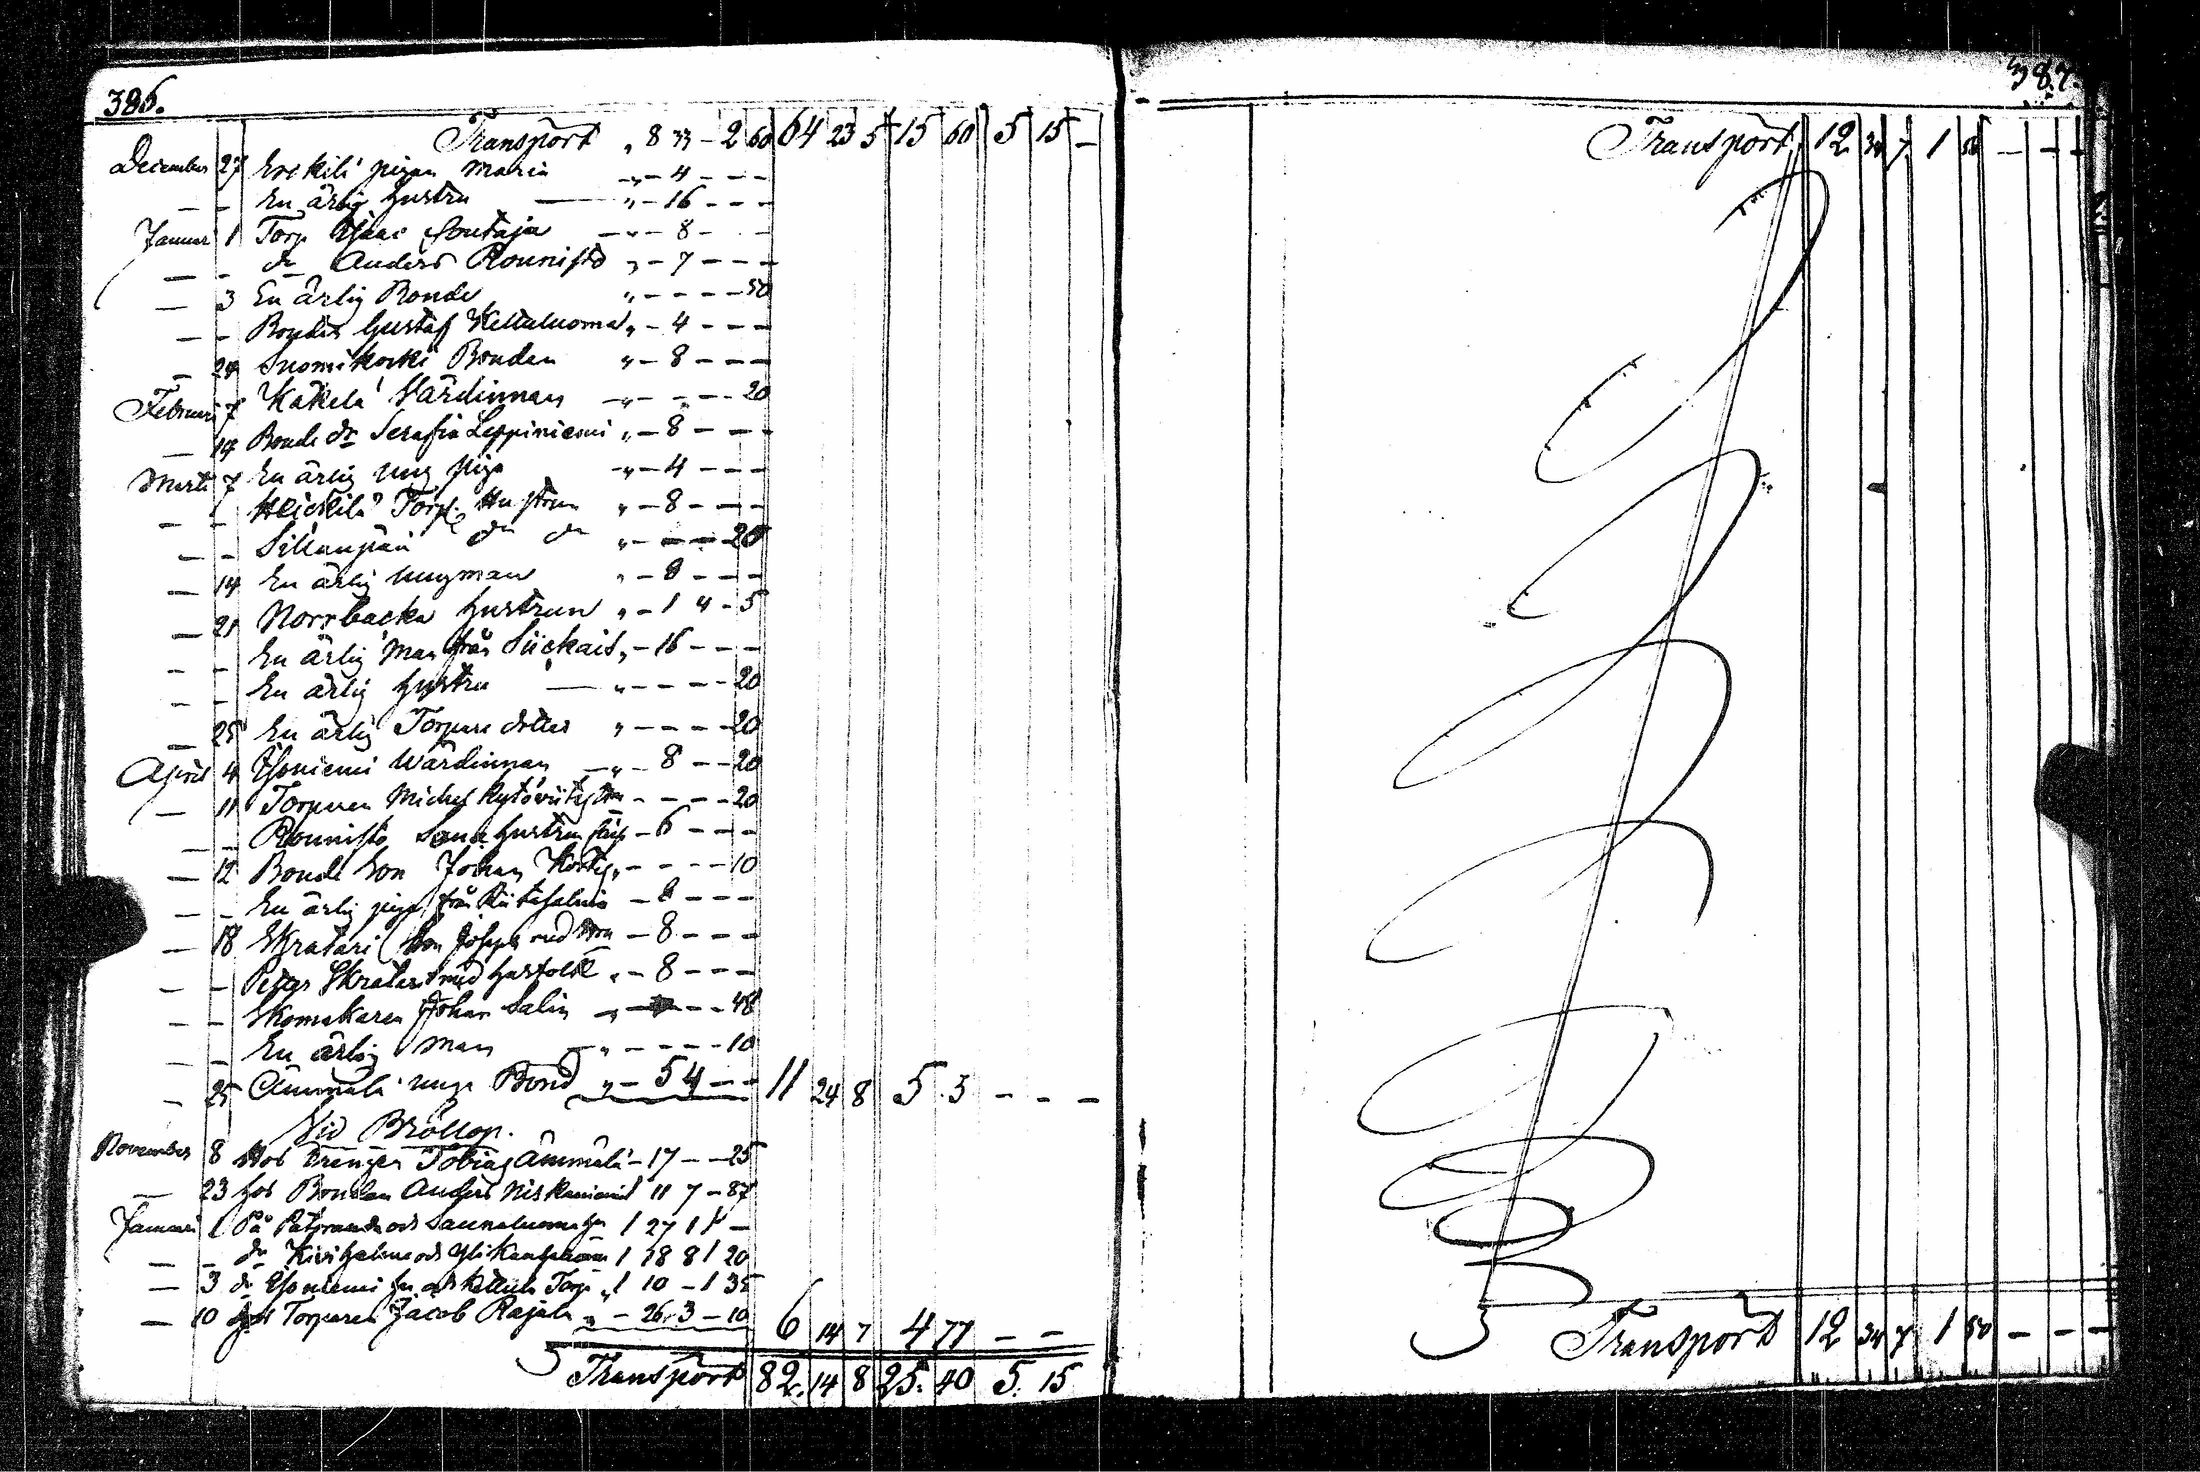 386.
Transport „ 8 33 - 2 60 64 23 5 15 60 5 15 -
December 27 Erkilä pigan Maria „ - 4 - - -
- - En ärlig hustru „ - 16 - - -
Januari 1 Torp. Isaac Soutaja - „ - 8 - - -
- - do Anders Rounisto „ - 7 - - -
- 3 En ärlig Bonde „ - - - - 50
- - Bonden Gustaf Keltaluoma „ - 4 - - -
- 24 Suomikoski Bondan „ - 8 - - -
Februari 7 Käkelä Värdinnan - „ - - - 20
- 14 Bonde dr Serafia Leppiniemi „ - 8 - - -
Marti 7 En ärlig ung piga - „ - 4 - - -
- - Heickilä Torp. Hustrun „ - 8 - - -
- - Sillanpää do do „ - - - - 20
- 14 En ärlig ungman „ - 8 - - -
- 21 Norrbacka hustrun „ - 1 4 - 5
- - En ärlig Man från Siickais „ - 16 - - -
- - En ärlig hustru - „ - - - - 20
- 25 En ärlig Torpare dotter „ - - - - 20
April 4 Isoniemi Wärdinnan - „ - 8 - - 20
- 11 Torparen Michel - - - - 20
- - Rounisto hustrun - 6 - - -
- 12 Bonde Son Johan „ - - - - 10
- - En ärlig piga från - 8 - - -
- 18 Skratari Son Joseph med - 8 - - -
- - Petter Skratari med husfolk „ - 8 - - -
- - Skomakaren Johan Salin - „ - - - 48
- - En ärlig Man - „ - - - - 10
- 25 Ämmälä unga Bond „ - 54 - - 11 24 8 5 . 3 - - -
Vid Bröllop.
November 8 Hos Drengen Tobias Ämmälä - 17 - - 25
- 23 hos Bondan Anders Niskaniemi 1 11 7 - 87
Januari 1 På och Saunaluoma 1 27 1 1 -
- - do och Ylikauppila 1 18 8 1 20
- 3 do Isoniemi och Torp „ 1 10 - 1 35
- 10 hos Torparen Jacob Rajala „ - 26 3 - 10 6 14 7 4 77 - -
Transport 82. 14 8 25. 40 5. 15
387.
Transport 12 34 7 1 50 - - -
Transport 12 34 7 1 50 - - -